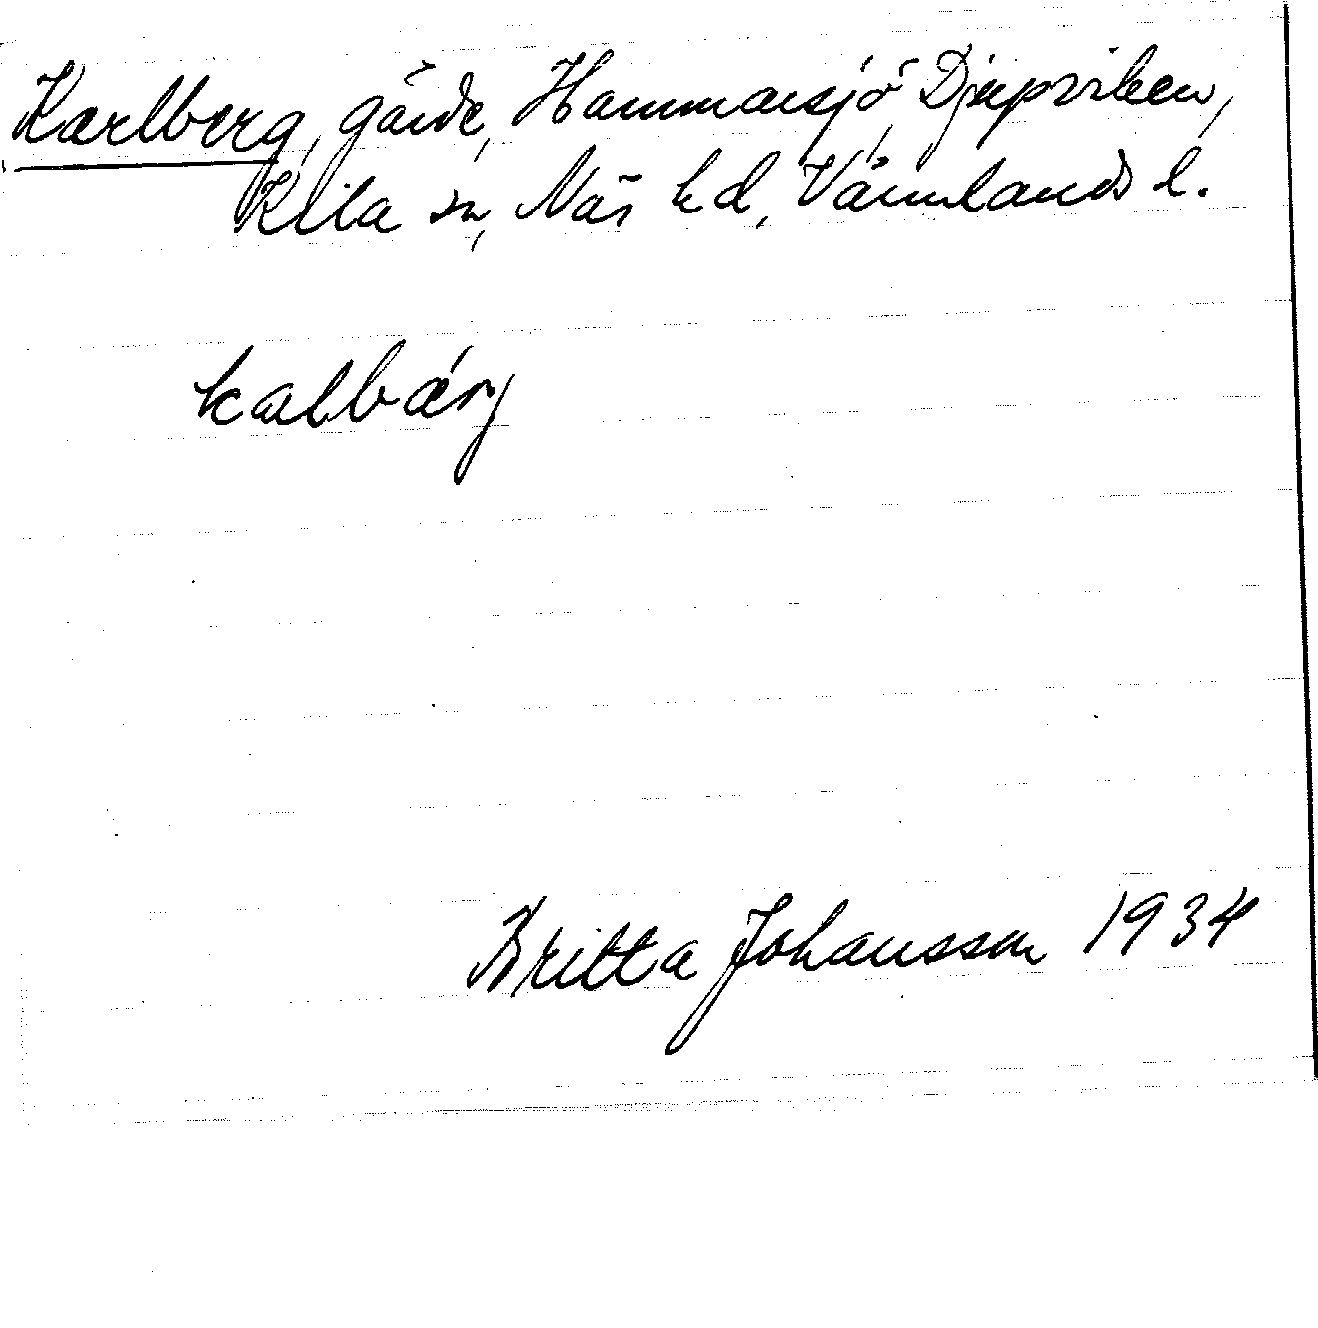 Karlberg, gärde, Hammarsjö, Djupviken,
Kila sn, Näs hd, Värmlands l.
kalbärj
Britta Johansson 1934